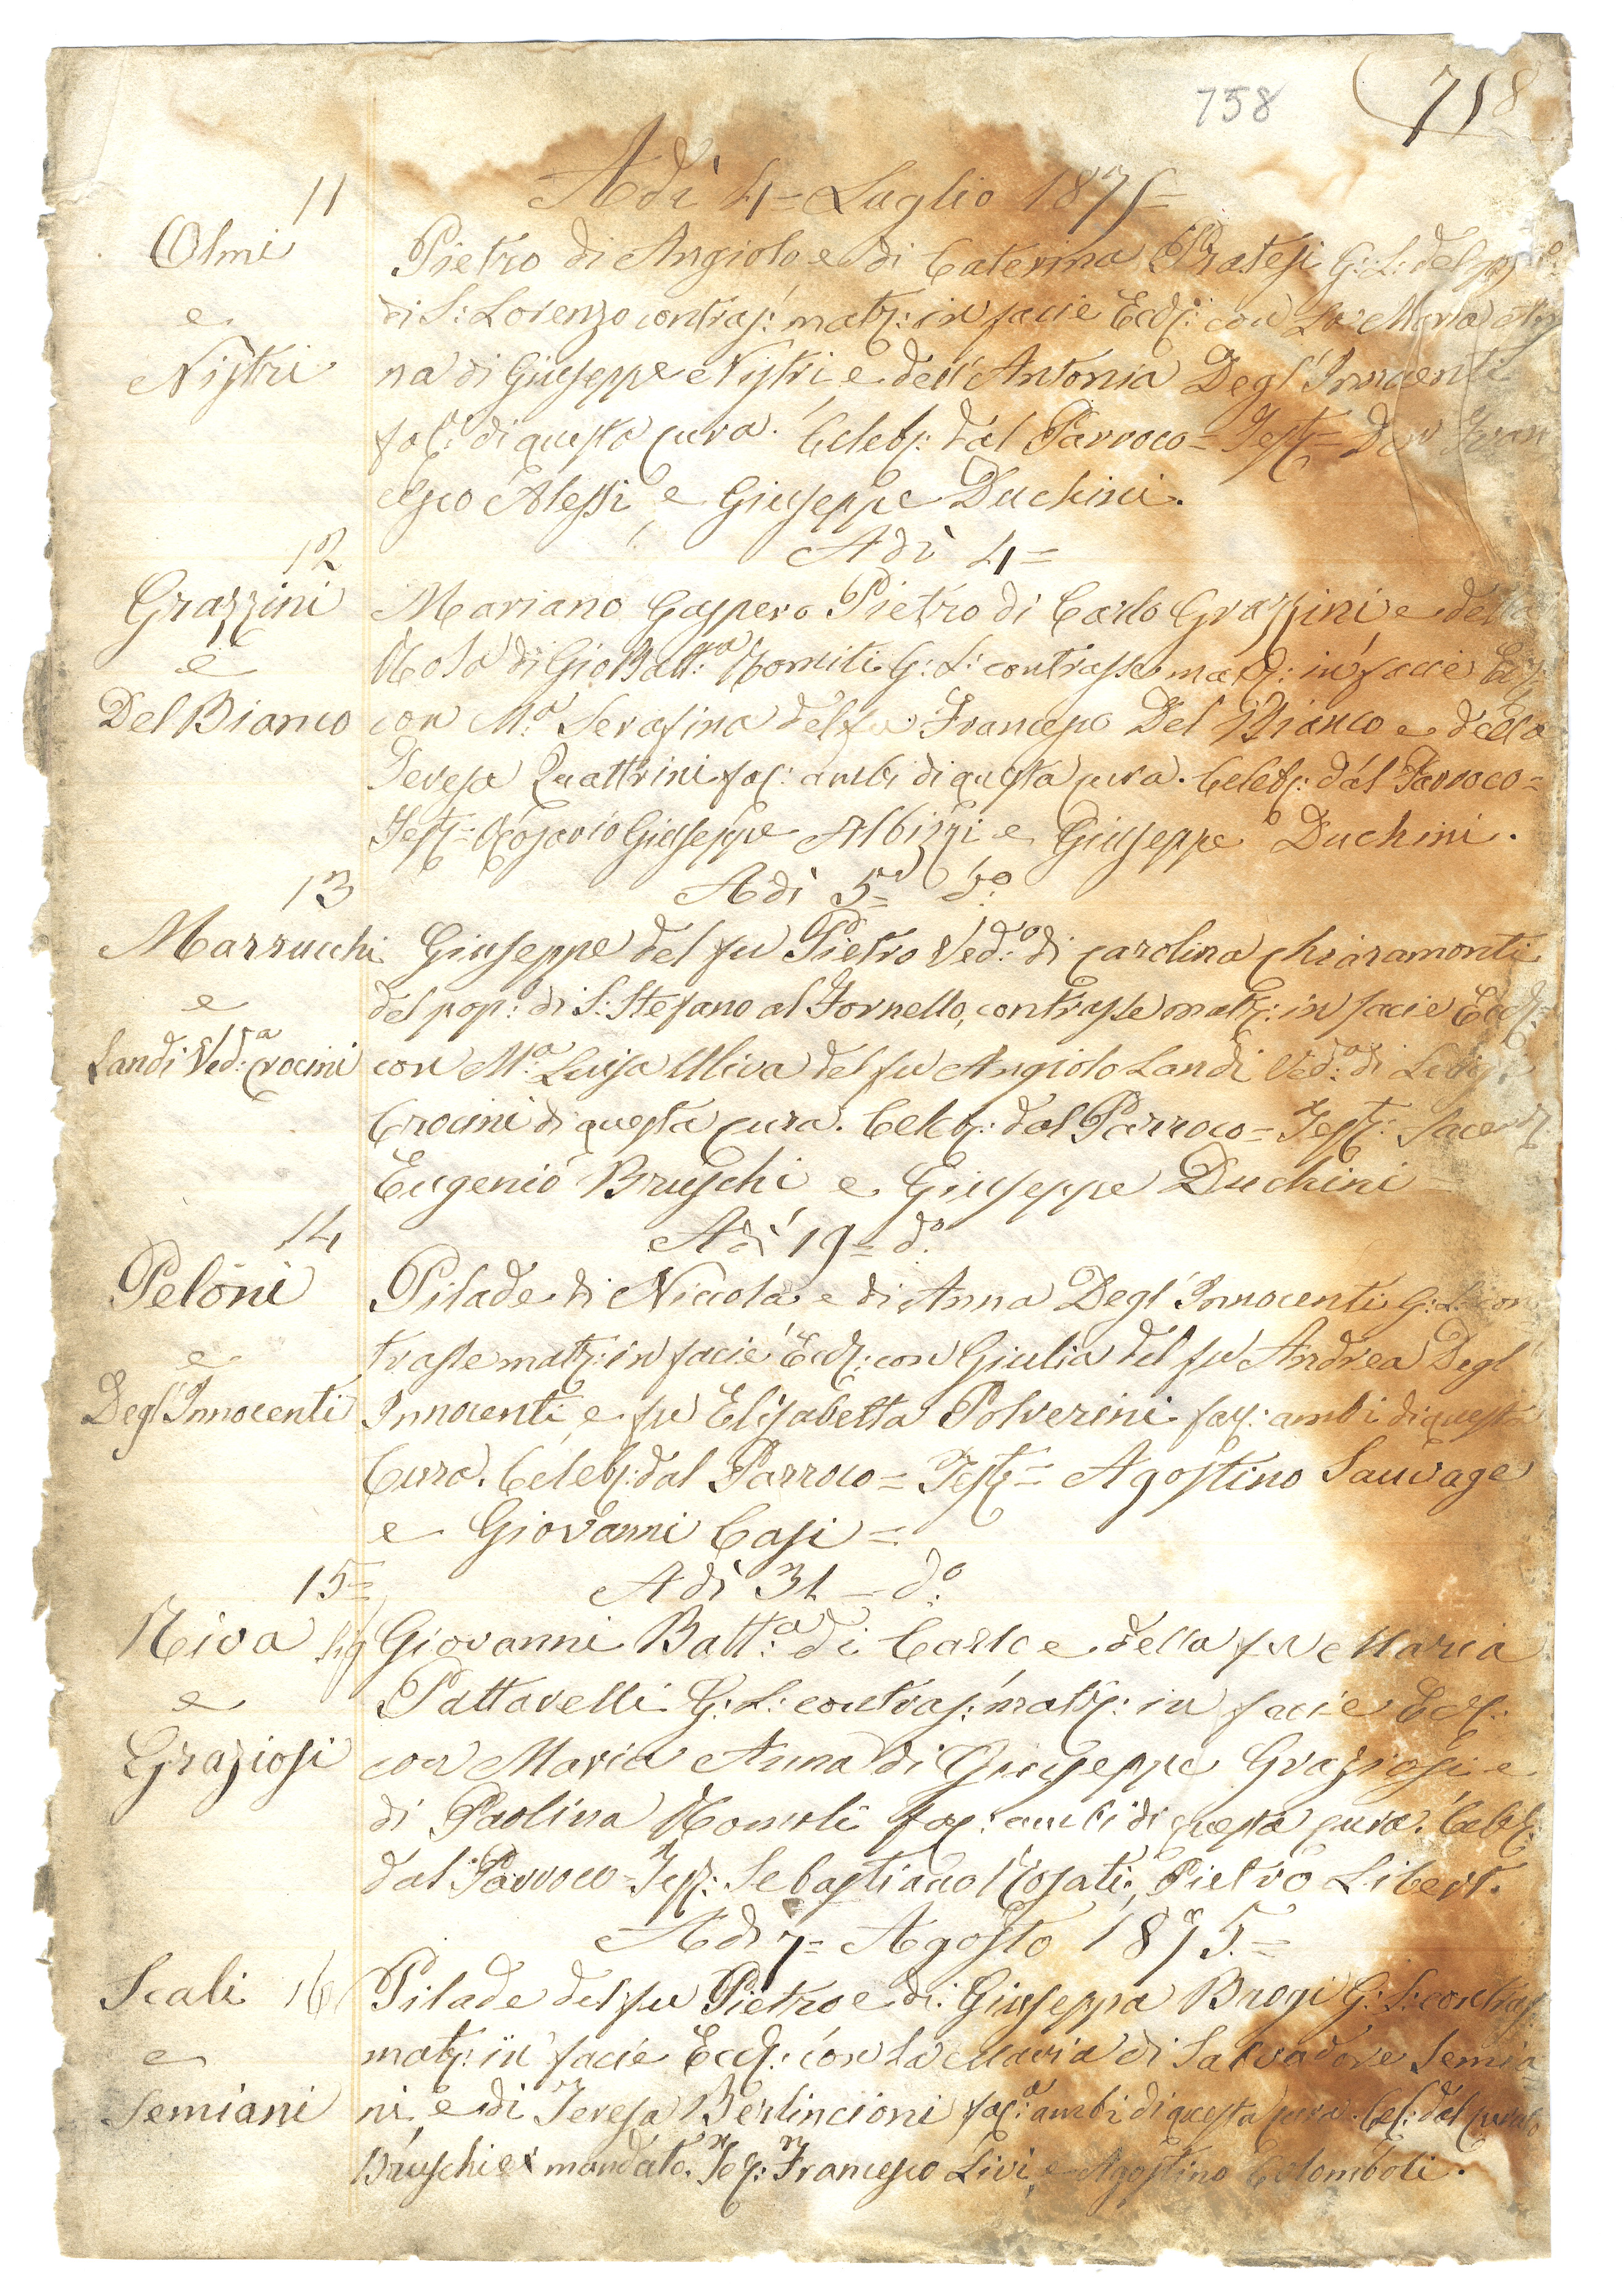 758
718
11
Adì 4= Luglio 1875=
Olmi
Pietro di Angiolo e di Caterina Pratesi G: L: del pop:
di S: Lorenzo contras: matr: in facie Eccl: con La Maria An
e
Nistri
na di Giuseppe Nistri, e dell'Antonia Degl'Innocenti
fac: di questa cura. Celebr: dal Parroco = Test = Don Fran
cesco Alessi, e Giuseppe Duchini.
12
Adì 4=
Grazzini
Mariano Gaspero Pietro di Carlo Grazzini e della
e
Rosa di Gio Batt:a Romiti G: L: contrasse matr: in facie Eccl:
Del Bianco
con M:a Serafina del fu Francesco Del Bianco e della
Teresa Quattrini fac: ambi di questa cura. Celebr: dal Parroco =
Test = Rosario Giuseppe Albizzi e Giuseppe Duchini.
13
Adì 5= d:o
Marrucchi
Giuseppe del fu Pietro Ved:o di Carolina Chiaramonti
e
del pop: di S: Stefano al Tornello, contrasse matr: in facie Eccl:
Landi Ved:a Crocini
con M:a Luisa Uliva del fu Angiolo Landi Ved:a di
Crocini di questa cura. Celebr: dal Parroco = Test: Sacer
Eugenio Bruschi e Giuseppe Duchini
14
Adì 19= d:o
Peloni
Pilade di Niccola e di Anna Degl'Innocenti G: L: con
e
trasse matr: in facie Eccl: con Giulia del fu Andrea Degl'
Degl'Innocenti
Innocenti, e fu Elisabetta Polverini fac: ambi di questa
Cura. Celebr: dal Parroco = Test = Agostino Sauvage
e Giovanni Casi =
15=
Adì 31 = d:o
Riva Sig
Giovanni Batt:a di Carlo e della fu Maria
e
Pattarelli G: L: contras: matr: in facie Eccl:
Graziosi
con Maria Anna di Giuseppe Graziosi e
di Paolina Romoli fac: ambi di questa cura. Celebr:
dal Parroco = Test: Sebastiano Rosati, Pietro Libert.
Adì 7= Agosto 1875.=
Scali 16
Pilade del fu Pietro e di Giuseppa Brogi G: L: contras:
e
matr: in facie Eccl: con La Maria di Salvadore Semia
Semiani
ni, e di Teresa Berlincioni fac: ambi di questa cura. Cel: dal curato
Bruschi ex mandato. Tes: Francesco Livi, e Agostino Colomboli.